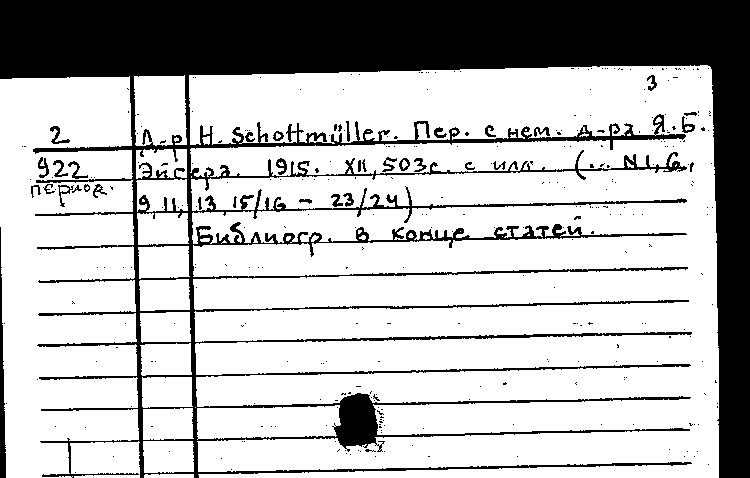 3
2 Д-р H. Schottmüller. Пер. с нем. д-ра Я.Б.
922 Эйсера. 1915. XII, 503с. с илл. (... N1, 6,
период. 9, 11, 13, 15/16 - 23/24).
Библиогр. в конце статей.